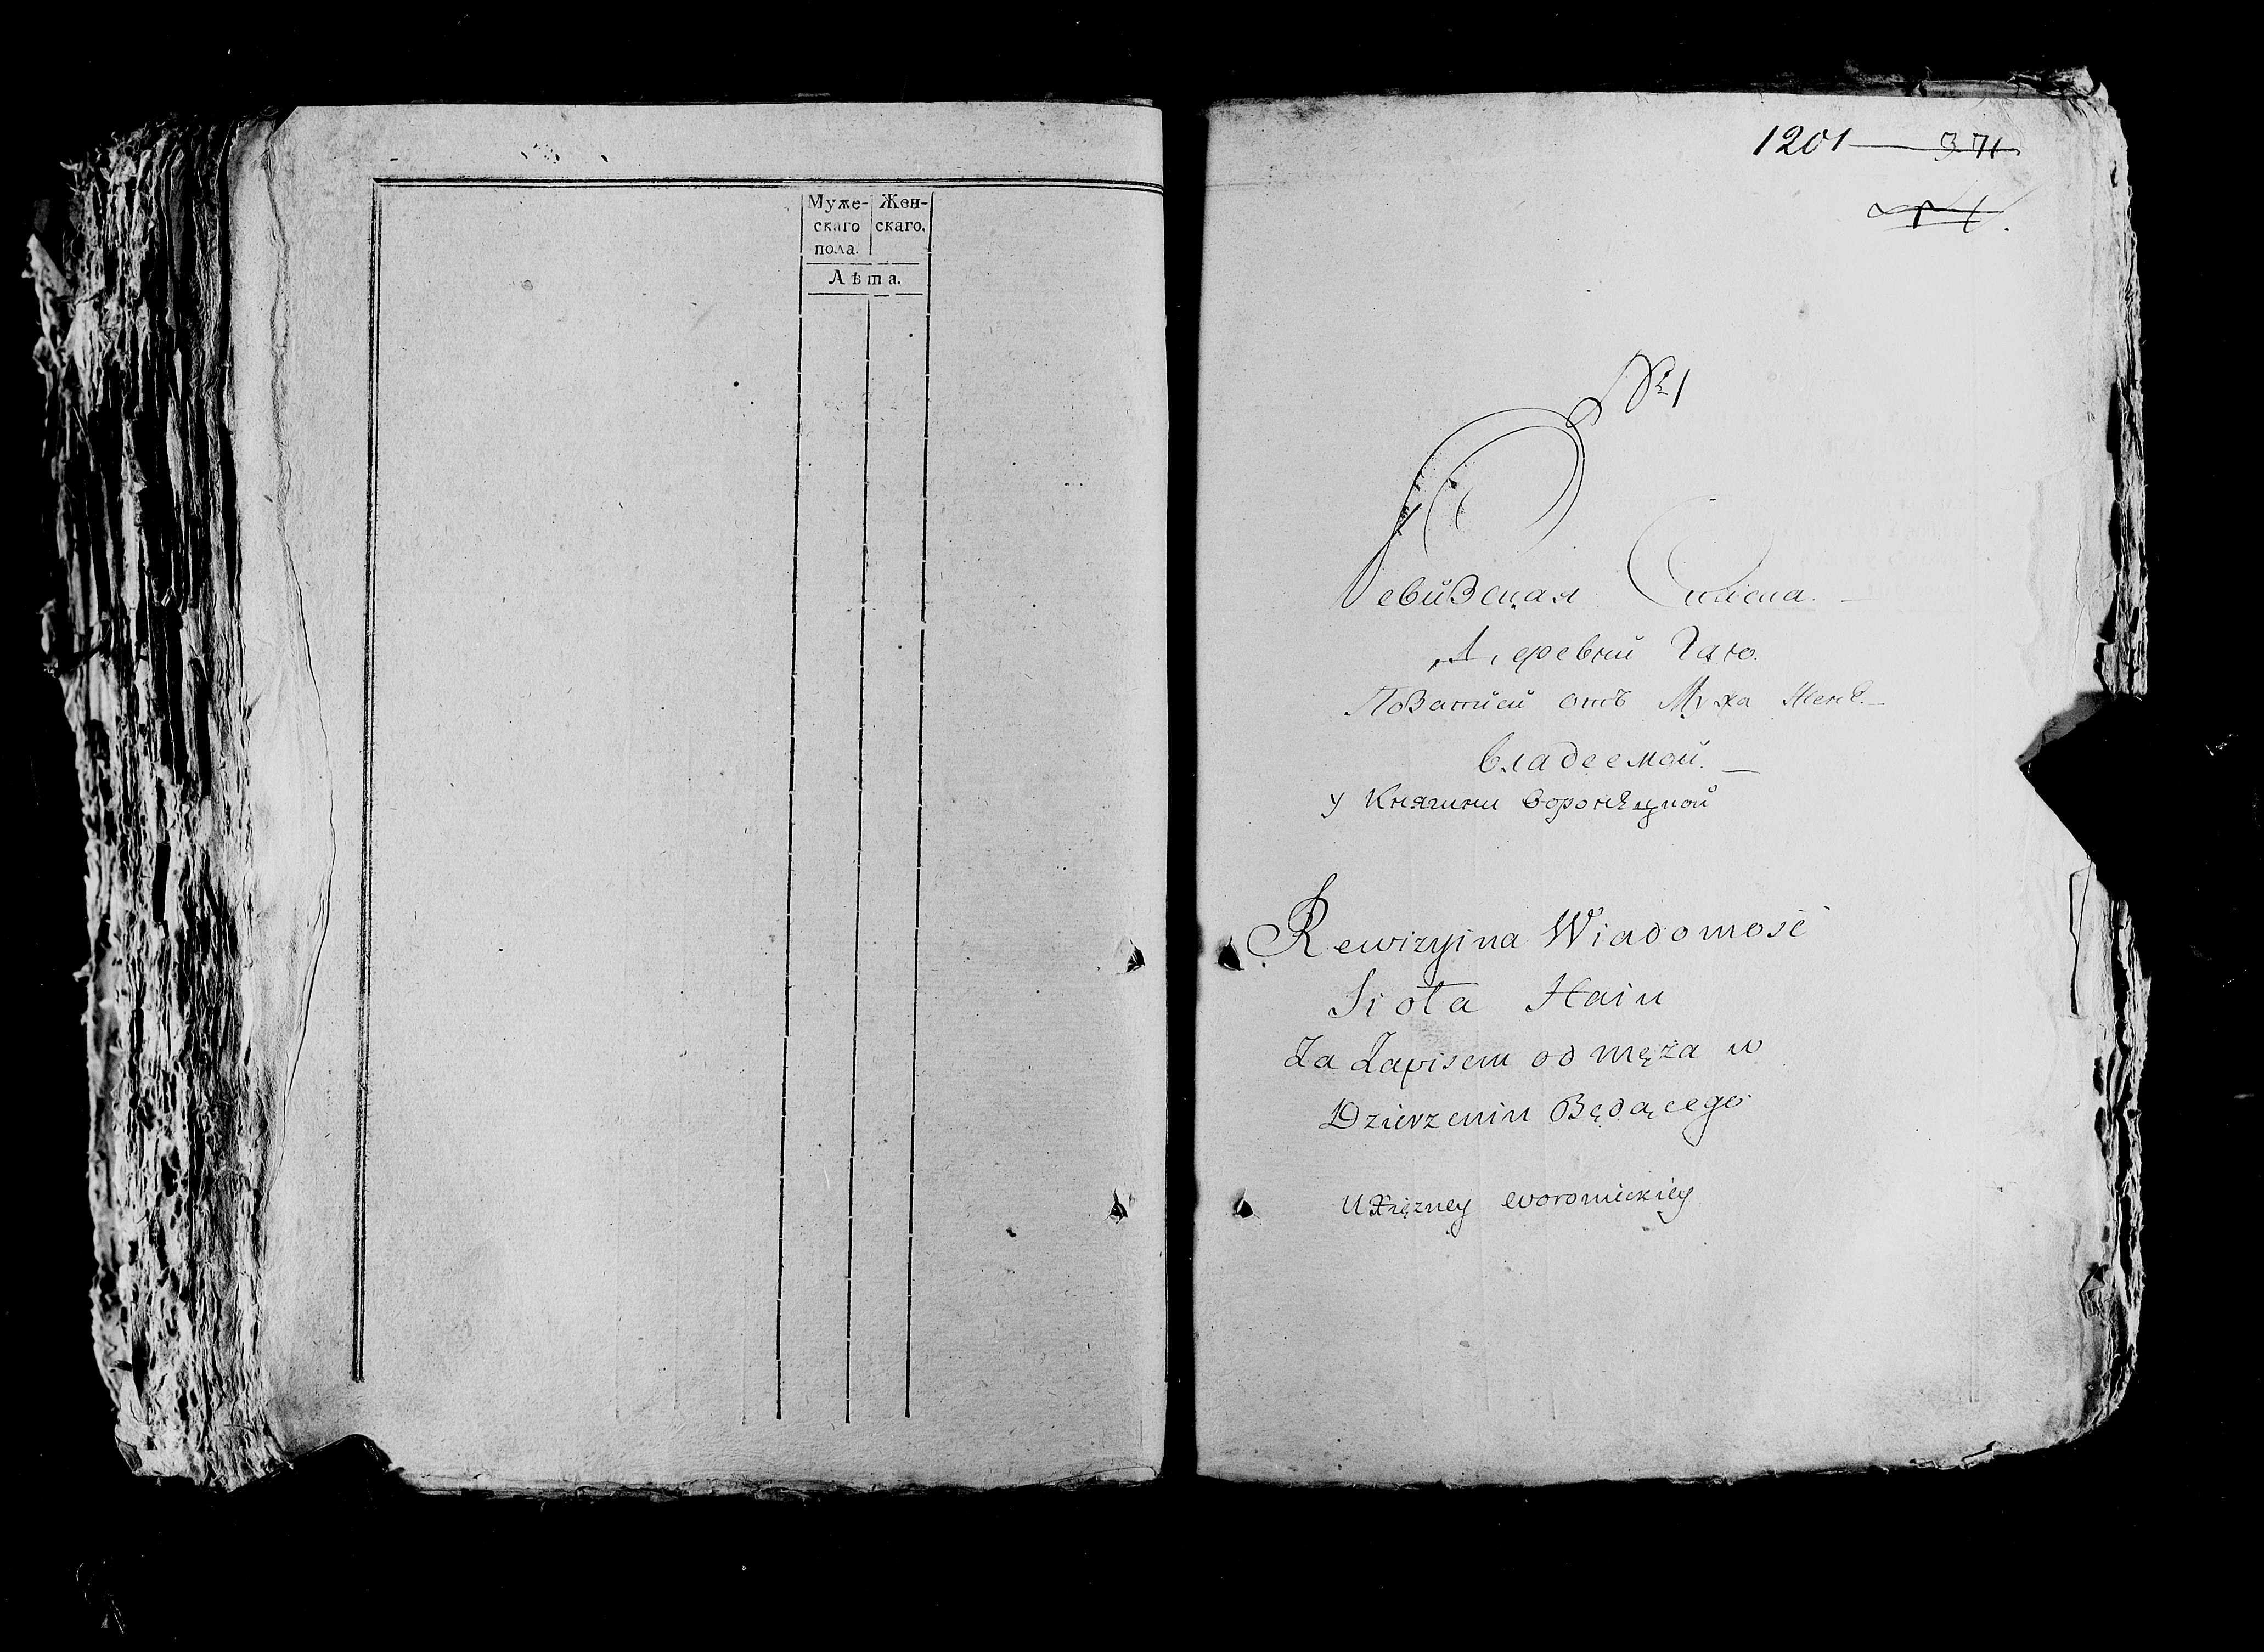 Муже- Жен-
скаго скаго.
пола.
Лѣта.
1201 371
№ 1
Ревизская Скаска.
Деревни Гаю.
По Записи отъ Мужа Женѣ
владеемой.
у Княгини Воронѣцкой
Rewizyina Wiadomość
Sioła Haiu
Za Zapisem od męża w
Dzierzeniu Będącego
U Xiężney Woronieckiey